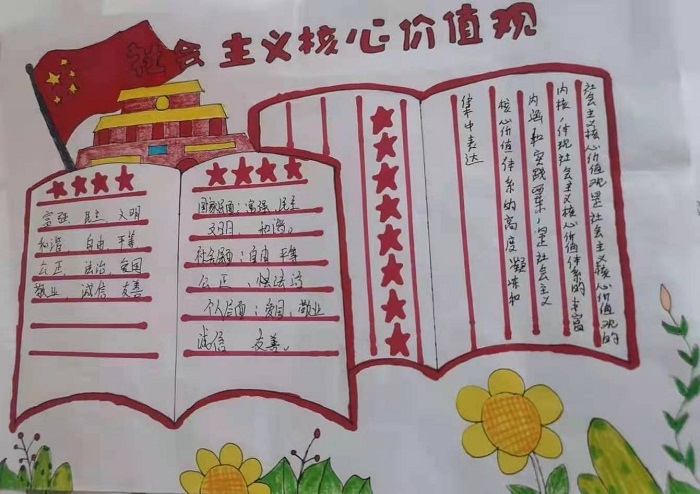 社会主义核心价值观
富强 民主 文明
和谐 自由 平等
公正 法治 爱国
敬业 诚信 友善
国家层面：富强 民主
文明、和谐。
社会层面：自由 平等
公正、法治
个人层面：爱国、敬业
诚信 友善。
社会主义核心价值观是社会主义核心价值观的
内核，体现社会主义核心价值体系的丰富
内涵和实践要求，是社会主义
核心价值体系的高度凝练和
集中表达